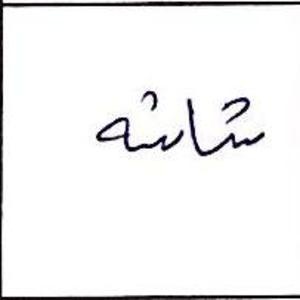 شاشه